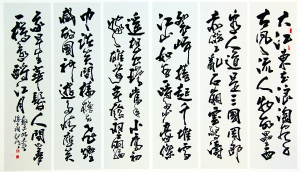 大江東去浪淘盡千
古風流人物故壘西
邊人道是三國周郎
赤壁亂石崩雲驚濤
裂岸捲起千堆雪
江山如畫一時多少豪傑
遙想公瑾當年小喬初
嫁了雄姿英發羽扇綸
巾談笑間檣櫓灰飛煙
滅故國神遊多情應笑
我早生華髮人間如夢
一樽還酹江月